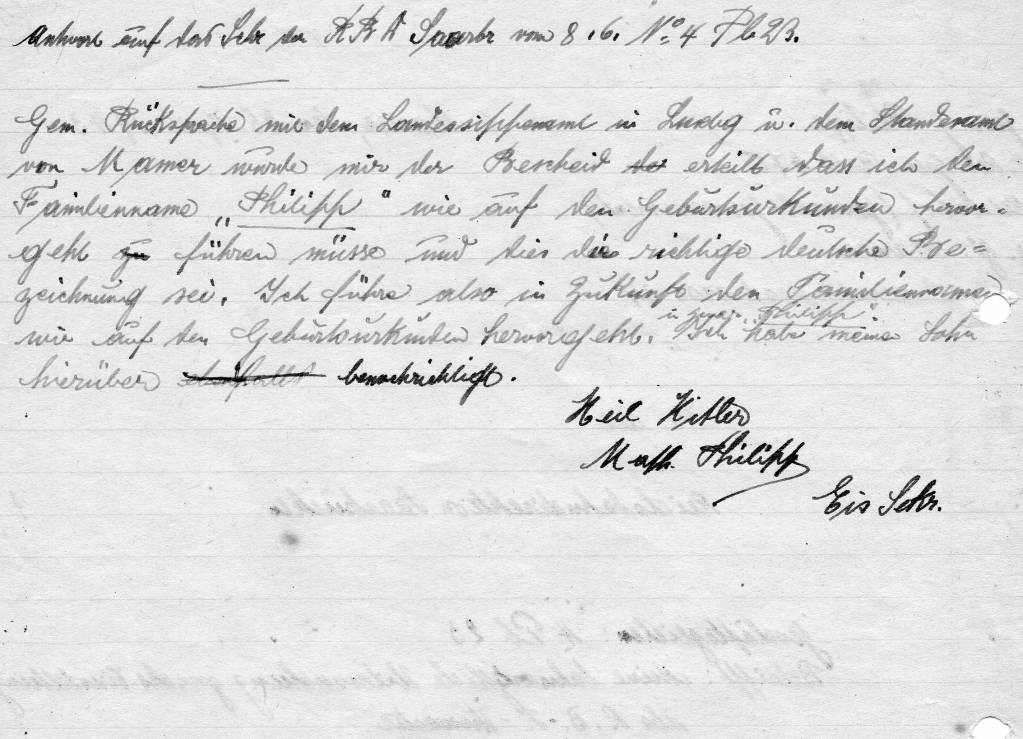 Antwort auf das Schr der RBD Saarbr vom 8.6. No 4 Pb 23.
Gem. Rücksprache mit dem Landessippenamt in Luxbg u. dem Standesamt
von Mamer wurde mir der Bescheid erteilt dass ich den
Familienname „Philipp" wie auf den Geburtsurkunden hervor-
geht zu führen müsse und dies die richtige deutsche Be=
zeichnung sei. Ich führe also in Zukunft den Familiennamen
„Philipp"
wie auf den Geburtsurkunden hervorgeht. Ich habe meine Sohn
hierüber ebenfalls benachrichtigt.
Heil Hitler
Math. Philipp
Eis Sekr.